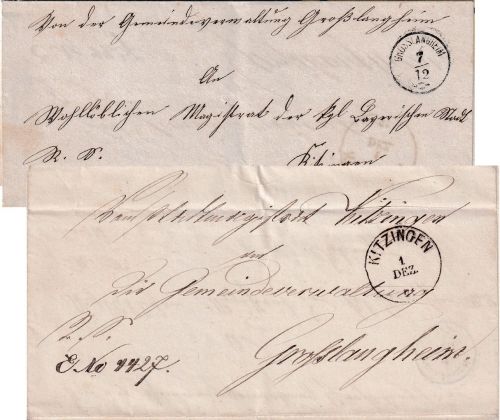 Von der Gemeindeverwaltung Großlangheim
GROSSLANGHEIM
7
12
An
Wohllöblichen Magistrat der kgl Bayerischen Stadt
R. S.
Kitzingen
DEZ
Vom Stadtmagistrat Kitzingen
KITZINGEN
1
DEZ.
an
die Gemeindeverwaltung
R. S.
E No 4427.
Grosslangheim.